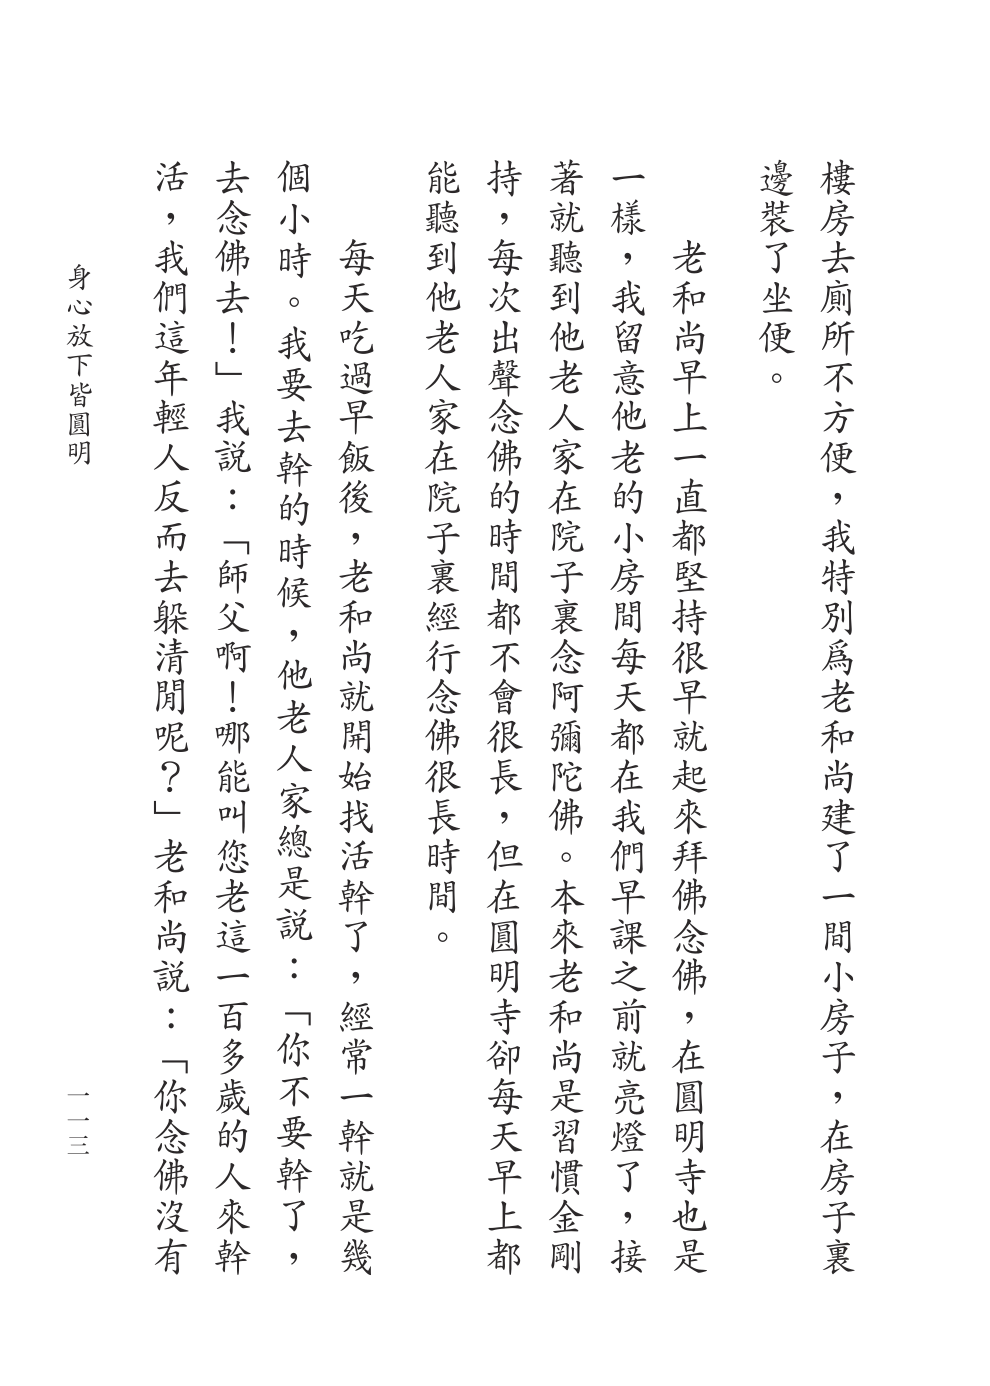 樓房去廁所不方便，我特別爲老和尚建了一間小房子，在房子裏
邊裝了坐便。
老和尚早上一直都堅持很早就起來拜佛念佛，在圓明寺也是
一樣，我留意他老的小房間每天都在我們早課之前就亮燈了，接
著就聽到他老人家在院子裏念阿彌陀佛。本來老和尚是習慣金剛
持，每次出聲念佛的時間都不會很長，但在圓明寺卻每天早上都
能聽到他老人家在院子裏經行念佛很長時間。
每天吃過早飯後，老和尚就開始找活幹了，經常一幹就是幾
個小時。我要去幹的時候，他老人家總是説：「你不要幹了，
去念佛去！」我説：「師父啊！哪能叫您老這一百多歲的人來幹
活，我們這年輕人反而去躲清閒呢？」老和尚説：「你念佛沒有
身心放下皆圓明
一一三